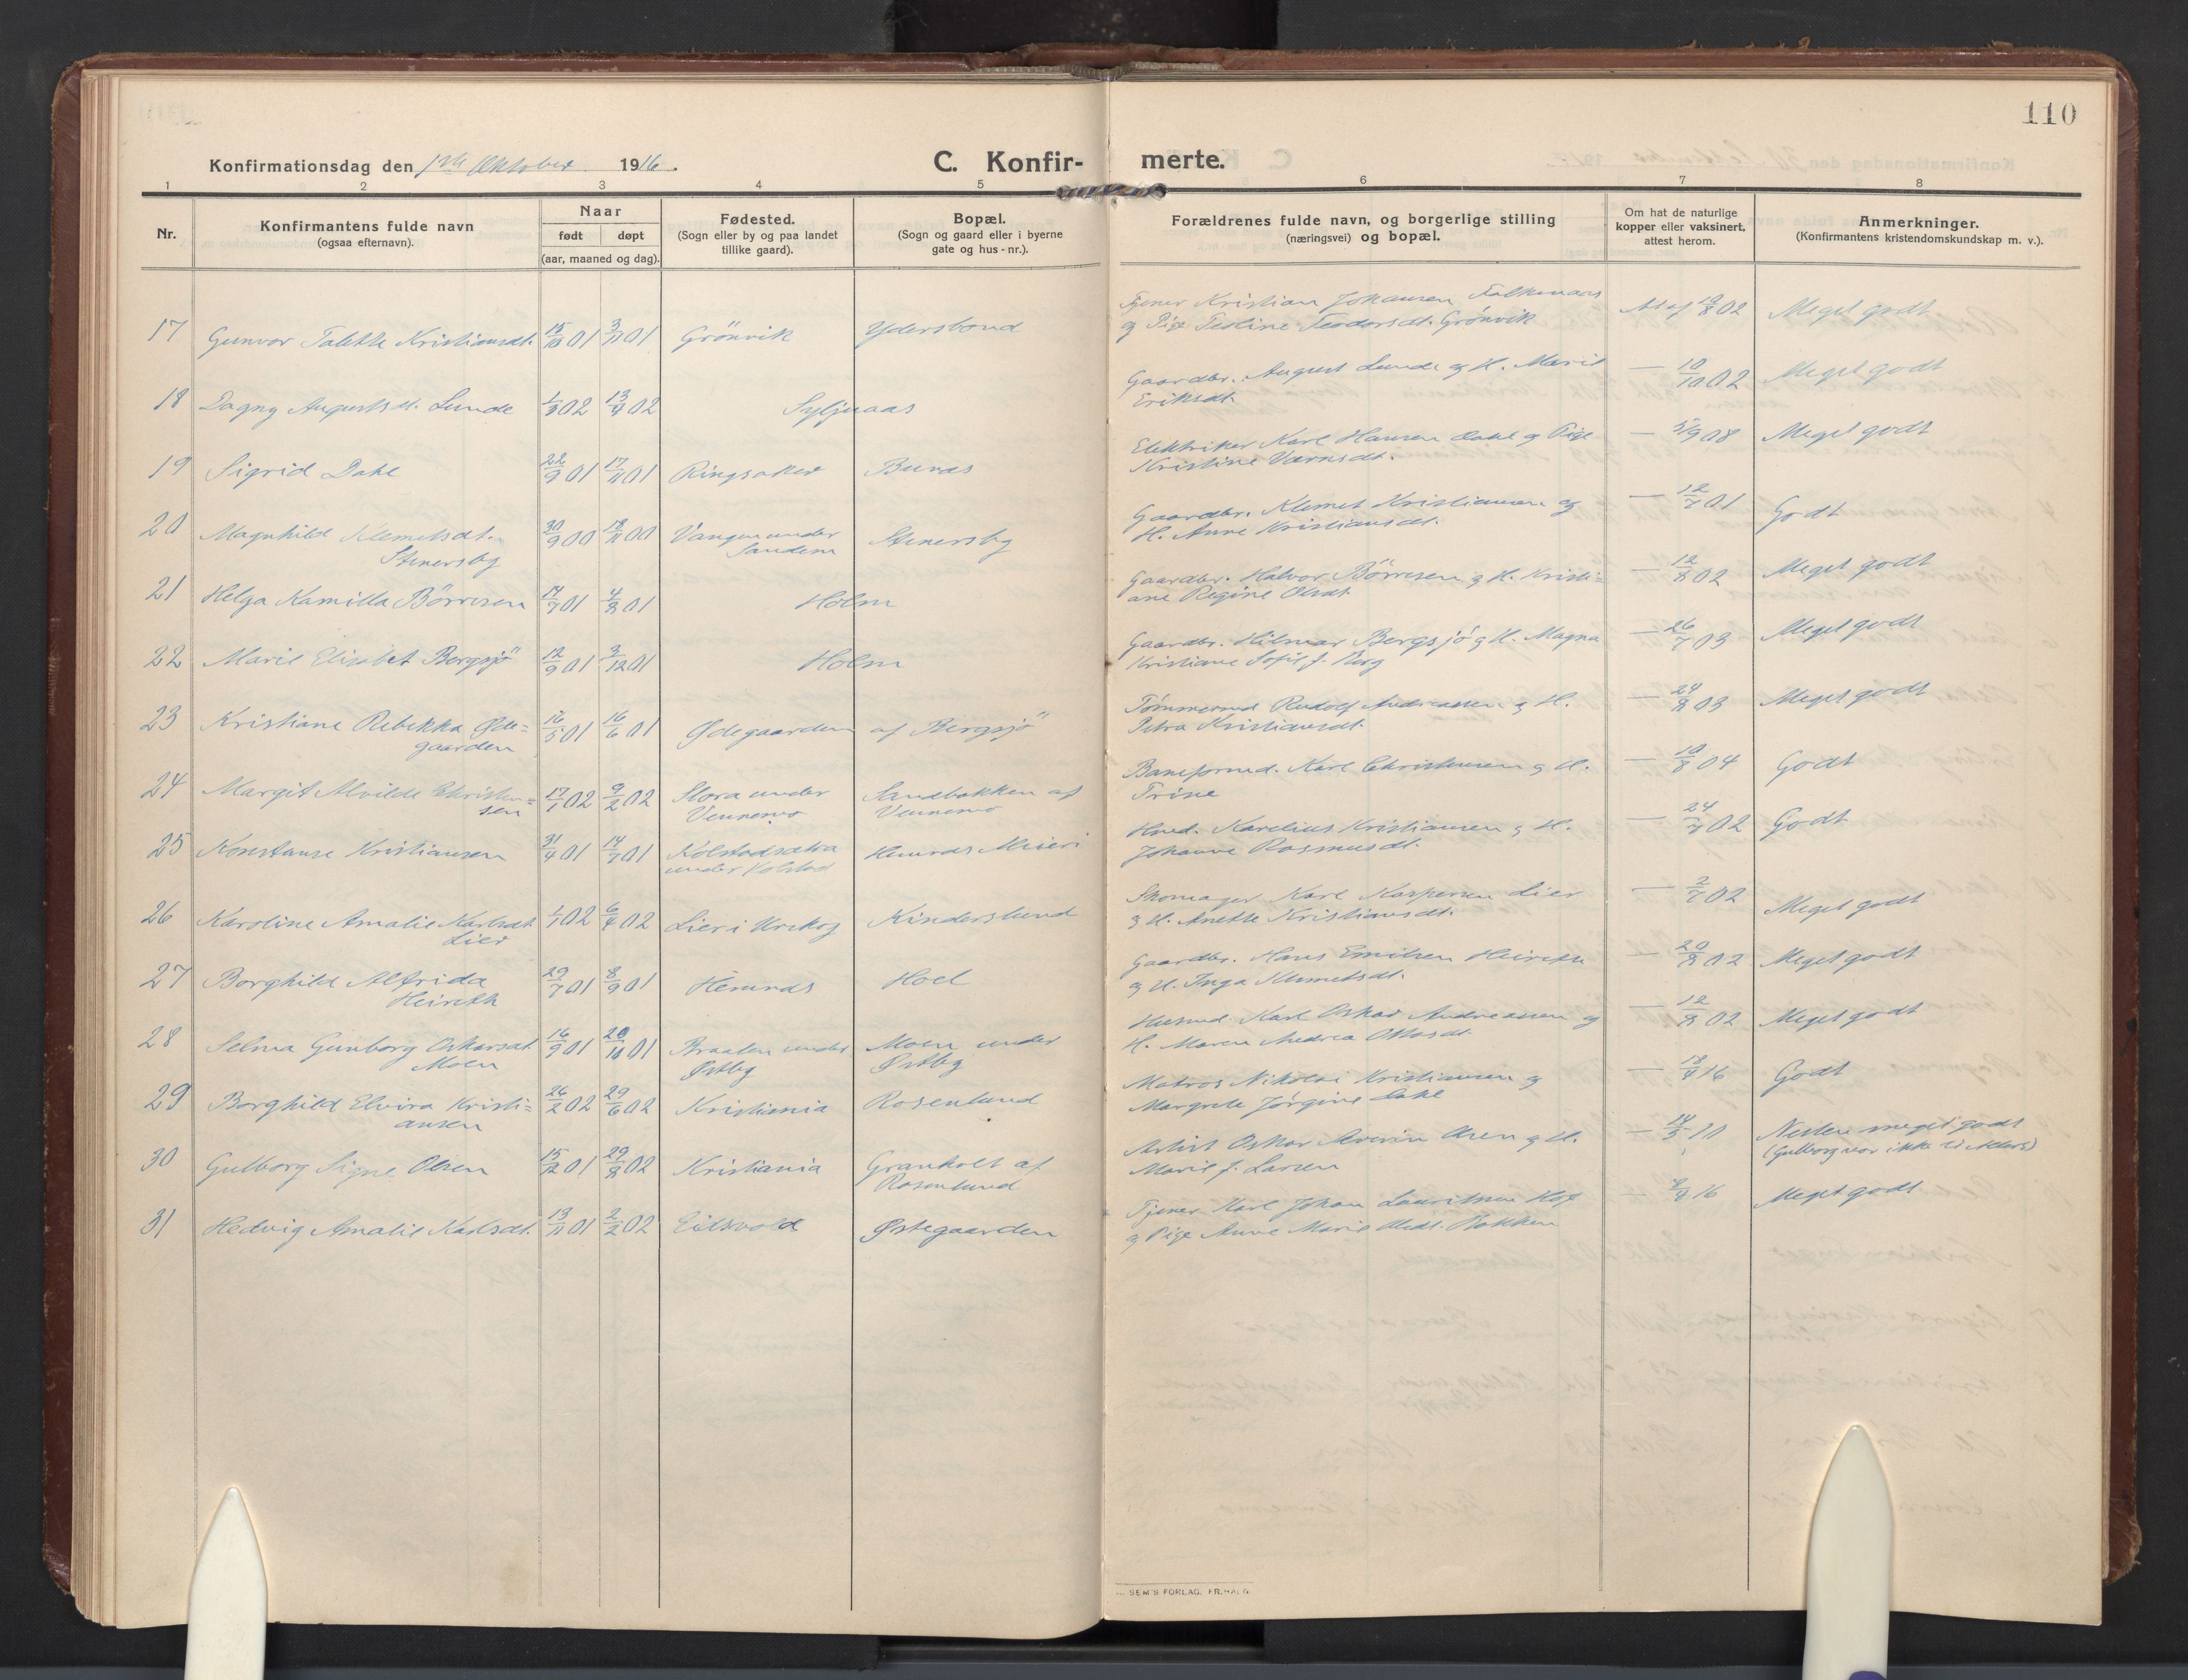 110
Konfirmationsdag den 1ste Oktober 1916.
C. Konfir- merte.
1 2 3 4 5 6 7 8
Nr.
Konfirmantens fulde navn
(ogsaa efternavn).
Naar
født døpt
(aar, maaned og dag).
Fødested.
(Sogn eller by og paa landet
tillike gaard).
Bopæl.
(Sogn og gaard eller i byerne
gate og hus-nr.).
Forældrenes fulde navn, og borgerlige stilling
(næringsvei) og bopæl.
Om hat de naturlige
kopper eller vaksinert,
attest herom.
Anmerkninger.
(Konfirmantens kristendomskundskap m. v.).
17 Gunvor Talette Kristiansdt. 15/10 01 3/11 01 Grönvik Ydersbond
Tjener Kristian Johansen Falkenaas
og Pige Teoline Teodorsdt. Grönvik
At af 19/8 02 Meget godt
18 Dagny Augustsdt. Lunde 1/3 02 13/4 02 Syljuaas
Gaardbr. August Lunde og H. Marie
Eriksdt.
— 10/10 02 Meget godt
19 Sigrid Dahl 22/9 01 17/11 01 Ringsaker Buraas
Elektriker Karl Hansen Dahl og Pige
KristineVærnsdt.
— 5/9 08 Meget godt
20 Magnhild Klemetsdt. 30/9 00 18/11 00 Vangen under Stenersby
Stenersby Sandem
Gaardbr. Klemet Kristiansen og
H. Anne Kristiansdt.
— 12/7 01 Godt
21 Helga Kamilla Börresen 14/7 01 4/8 01 Holm
Gaardbr. Halvor Börresen og H. Kristi=
ane Regine Olsdt.
— 12/8 02 Meget godt
22 Marie Elisabet Bergsjö 12/9 01 3/12 01 Holm
Gaardbr. Hilmar Bergsjö og H. Magna
Kristiane Sofie f. Berg
— 26/7 03 Meget godt
23 Kristiane Rebekka Øde= 16/5 01 16/6 01 Ødegaarden af Bergsjö
gaarden
Tømmermd. Rudolf Andreassen og H.
Petra Kristiansdt.
— 24/8 03 Meget godt
24 Margit Alvilde Christen= 17/1 02 9/2 02 Stora under Sandbakken af
sen Vennemo Vennemo
Baneformd. Karl Christensen og H.
Trine
— 10/8 04 Godt
25 Konstanse Kristiansen 31/4 01 14/7 01 Kolstadsætra Hemnes Meieri
under Kolstad
Hmd. Karelius Kristiansen og H.
Johanne Rasmusdt.
— 24/7 02 Godt
26 Karoline Amalie Karlsdt. 1/1 02 6/4 02 Lier i Urskog Kinderslund
Lier
Skomager Karl Kaspersen Lier
og H. Anette Kristiansdt.
— 2/7 02 Meget godt
27 Borghild Alfrida 29/7 01 8/9 01 Hemnes Hoel
Heireth
Gaardbr. Hans Emilsen Heireth
og H. Inga Klemetsdt.
— 20/8 02 Meget godt
28 Selma Gunborg Oskarsdt. 16/9 01 20/10 01 Braaten under Moen under
Moen Østby Østby
Husmd. Karl Oskar Andreassen og
H. Maren Andrea Ottosdt.
— 12/8 02 Meget godt
29 Borghild Elvira Kristi= 26/2 02 29/6 02 Kristiania Rosenlund
ansen
Matros Nikolai Kristiansen og
Margrete Jørgine
— 18/4 16 Godt
30 Gulborg Signe Olsen 15/2 01 29/8 02 Kristiania Granholt af
Rosenlund
Oskar Olsen og H.
Marie f. Larsen
— 14/5 11 Nesten meget godt
(Gulborg var ikke til)
31 Hedvig Amalie Karlsdt. 13/11 01 2/2 02 Eidsvold Østegaarden
Tjener Karl Johan Lauritsen Hof
og Pige Anne Marie Olsdt. Bakken
— 16 Meget godt
SEM'S FORLAG, FR.HALD.